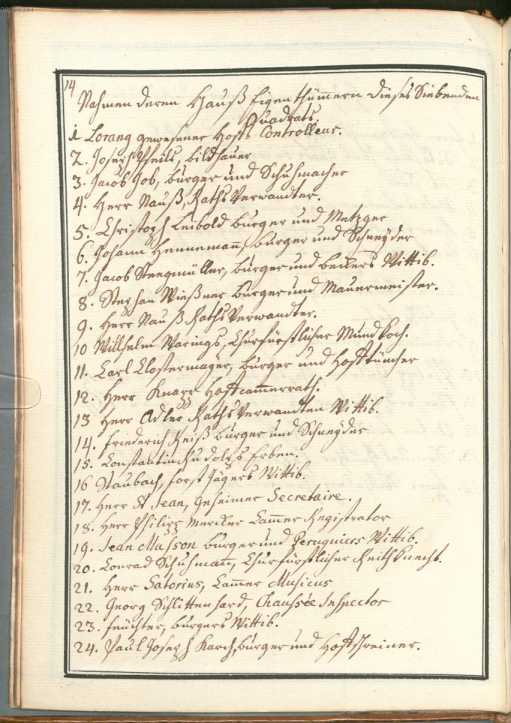 14
Nahmen deren Hauß Eigenthümern dieses Siebenden
Quadrats.
1. Lorang gewesener Hoff Controlleur.
2. Joseph Theils, bildhauer
3. Jacob Job, bürger und Schuhmacher
4. Herr Nauß, RathsVerwandter.
5. Christoph Leibold bürger und Metzger
6. Johann Hennemann, bürger und Schneyder
7. Jacob Steegmüller, bürger und beckers Wittib.
8. Stephan Wießner bürger und Maurermeister.
9. Herr Nauß RathsVerwandter.
10 Willhelm Warings, Churfürstlicher Mundkoch.
11. Carl Clostermayer, bürger und Hofftüncher
12. Herr Knapp Hoffcammerrath.
13 Herr Adler RathsVerwandten Wittib.
14. Friederich Reiß bürger und Schneyder
15. Constantin Rudolphs Erben.
16 Staubach, Forst Jägers Wittib.
17. Herr St Jean, Geheimer Secretaire.
18. Herr Philipp Mercker Cammer Registrator
19. Jean Masson bürger und Peruquiers Wittib.
20. Conrad Schuhmann, Churfürstlicher Reithknecht.
21. Herr Satorius, Cammer Musicus
22. Georg Schlittenhard, Chaussée Inspector
23. Feuchter, bürgers Wittib.
24. Paul Joseph Karch, bürger und Hoffschreiner.